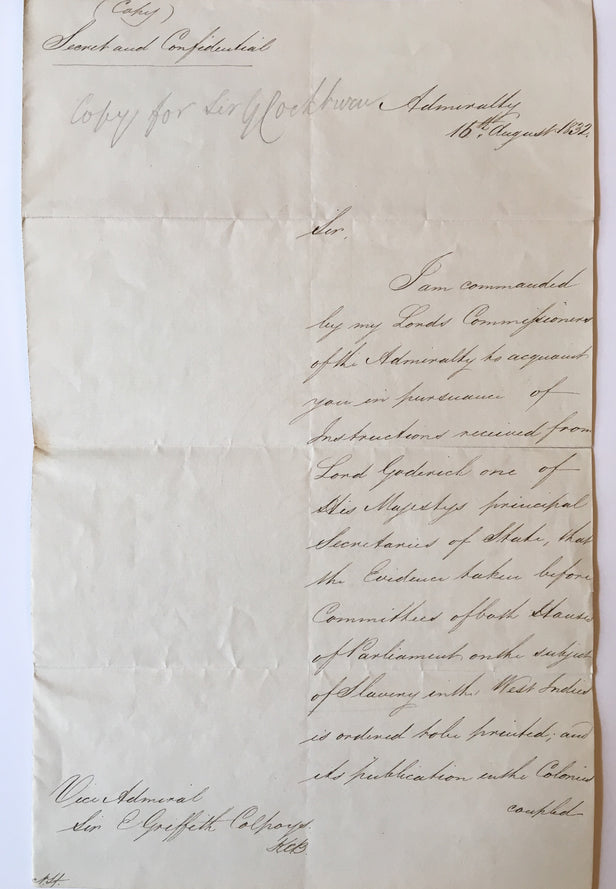 (Copy)
Secret and Confidential
Copy for Sir G Cockburn
Admiralty
16th August 1832.
Sir,
I am commanded
by my Lords Commissioners
of the Admiralty to acquaint
you in pursuance of
Instructions received from
Lord Goderich one of
His Majestys principal
Secretaries of State, that
the Evidence taken before
Committees of both Houses
of Parliament on the subject
of Slavery in the West Indies
is ordered to be printed; and
its publication in the Colonies
coupled
Vice Admiral
Sir E Griffith Colpoys.
KCB